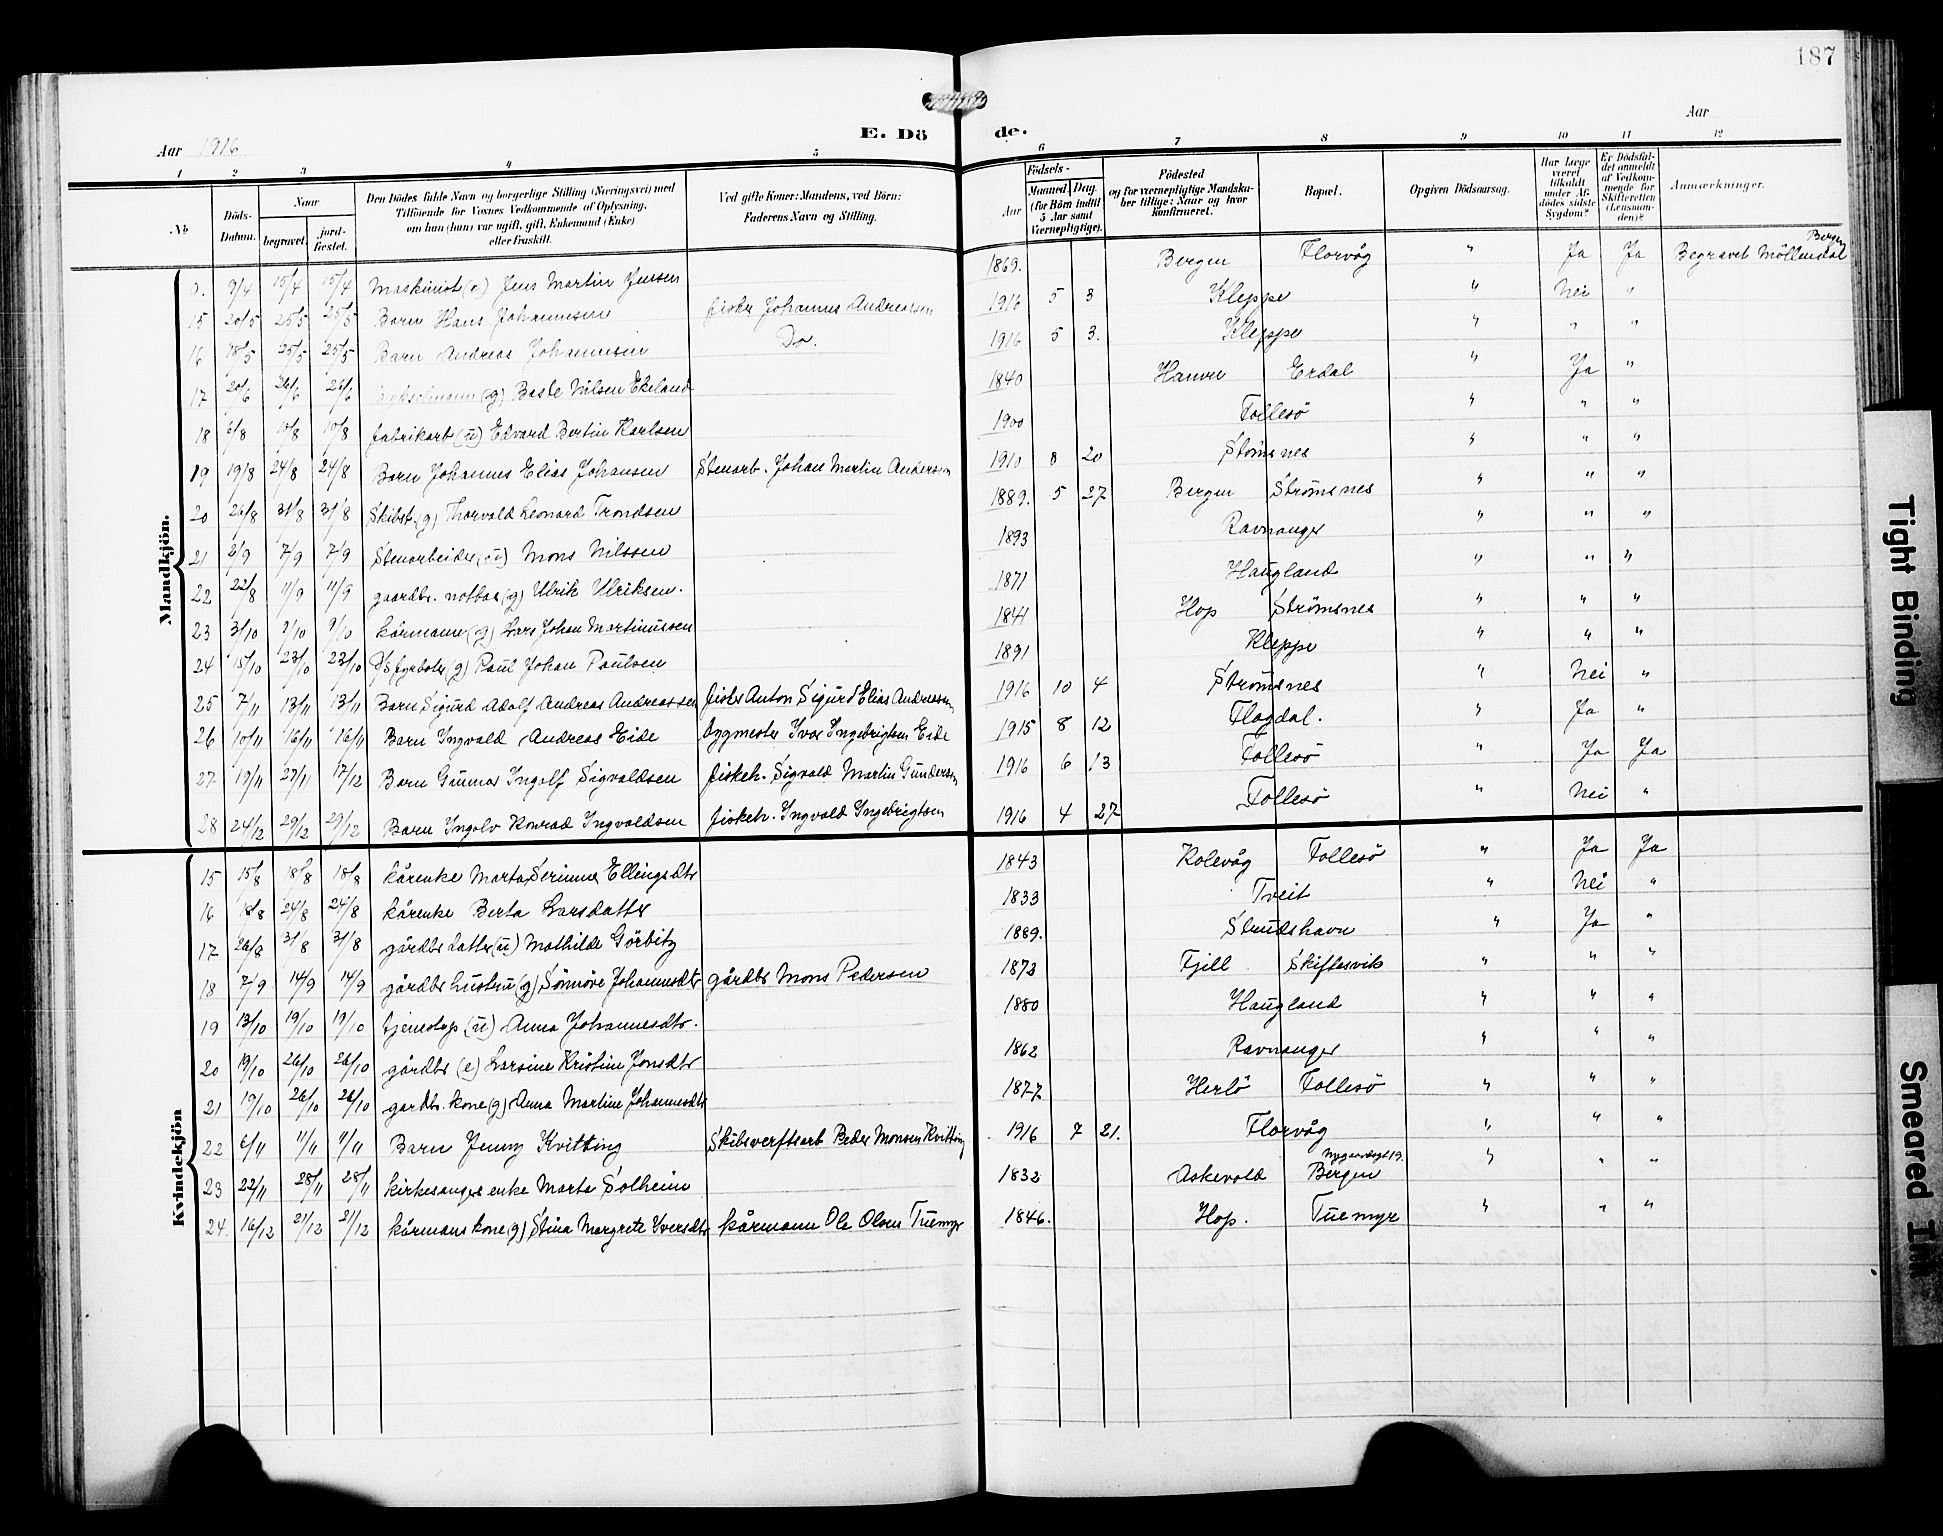 187
Aar 1916
E. Dö de.
Aar
1 2 3 4 5 6 7 8 9 10 11 12
No
Döds-Datum.
Naar begravet. jordfæstet.
Den Dödes fulde Navn og borgerlige Stilling (Næringsvei) med Tilföiende for Voxnes Vedkommende af Oplysning, om han (hun) var ugift, gift, Enkemand (Enke) eller fraskilt.
Ved gifte Koner: Mandens, ved Börn: Faderens Navn og Stilling.
Födsels-
Aar Maaned. Dag. (for Börn indtil 5 Aar samt Værnepligtige).
Födested og for værnepligtige Mandskaber tillige: Naar og hvor konfirmeret.
Bopæl.
Opgiven Dödsaarsag.
Har Læge været tilkaldt under Afdödes sidste Sygdom?
Er Dödsfaldet anmeldt af Vedkommende for Skifteretten (Lensmanden)?
Anmærkninger.
Mandkjön.
0. 9/4 15/4 15/4 Maskinist (e) Jens Martin Jensen 1869. Bergen Florvåg " Ja Ja Begravet Möllendal Bergen
15 20/5 25/5 25/5 Barn Hans Johannesen fisker Johannes Andreassen 1916 5 3 Kleppe " Nei "
16 18/5 25/5 25/5 Barn Andreas Johannesen Do. 1916 5 3. Kleppe " " "
17 20/6 26/6 26/6 (g) Baste Nilsen Ekeland 1840 Hanvn Erdal " Ja "
18 6/8 10/8 10/8 fabrikarb (u) Edvard Bertin Karlsen 1900 Follesö " " "
19 19/8 24/8 24/8 Barn Johannes Elias Johansen Stenarb. Johan Martin Andersen 1910 8 20 Strömsnes " " "
20 26/8 31/8 31/8 Skibst. (g) Thorvald Leonard Trondsen 1889. 5 27 Bergen Strömsnes " " "
21 2/9 7/9 7/9 Stenarbeider (u) Mons Nilssen 1893 Ravnanger " " "
22 22/8 11/9 11/9 gaardbr. notbas (g) Ulrik Ulriksen. 1871 Haugland " " "
23 3/10 9/10 9/10 kårmann (g) Lars Johan Martinussen 1841 Hop Strömsnes " " "
24 15/10 23/10 23/10 D/S fyrböter (g) Paul Johan Paulsen 1891 Kleppe " " "
25 7/11 13/11 13/11 Barn Sigurd Adolf Andreas Andreassen fisker Anton Sigurd Elias Andreassen 1916 10 4 Strömsnes " Nei "
26 10/11 16/11 16/11 Barn Ingvald Andreas Eide bygmester Ivar Ingebrigtsen Eide 1915 8 12 Flagdal. " Ja "
27 19/11 27/11 17/12 Barn Gunnar Ingolf Sigvaldsen fiskeh. Sigvald Martin Gundersen 1916 6 13 Follesö " Ja Ja
28 24/12 29/12 29/12 Barn Ingolv Konrad Ingvaldsen fiskeh. Ingvald Ingebrigtsen 1916 4 27 Follesö " Nei "
Kvindekjön
15 15/8 18/8 18/8 kårenke Marta Serinne Ellingsdtr 1843 Kolevåg Follesö " Ja Ja
16 18/8 24/8 24/8 kårenke Berta Larsdatter 1833 Tveit " Nei "
17 26/8 31/8 31/8 gårdbr datter (u) Mathilde Görbitz 1889. Strudshavn " Ja "
18 7/9 14/9 14/9 gårdbr hustru (g) Sönnöve Johannesdtr gårdbr Mons Pedersen 1873 Fjell Skiftesvik " " "
19 13/10 19/10 19/10 tjenestep (u) Anna Johannesdtr. 1880 Haugland " " "
20 19/10 26/10 26/10 gårdbr (e) Larsine Kristine Jonsdtr 1862 Ravnanger " " "
21 19/10 26/10 26/10 gardbr. kone (g) Anna Martine Johannesdtr 1877 Herlö Follesö " " "
22 6/11 11/11 11/11 Barn Jenny Kvitting Skibsverftsarb Peder Monsen Kvitting 1916 7 21. Florvåg " " "
23 22/11 28/11 28/11 kirkesanger enke Marta Solheim 1832 Askevold Bergen " " "
24. 16/12 21/12 21/12 kårmans kone (g) Stina Margrete Iversdtr kårmann Ole Olsen Tuemyr 1846. Hop. Tuemyr " " "
Tight Binding
Smeared Ink